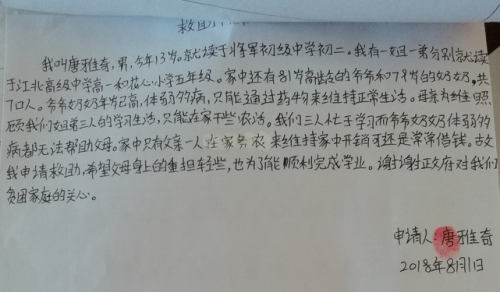 救助
我叫唐雅奇,男,今年13岁。就读于将军初级中学初二。我有一姐一弟分别就读
于江北高级中学高一和花心小学五年级。家中还有81岁高龄的爷爷和79岁的奶奶。共
7口人。爷爷奶奶年岁已高,体弱多病,只能通过药物来维持正常生活。母亲为维照
顾我们姐弟三人的学习生活,只能在家干些农活。我们三人忙于学习而爷爷奶奶体弱多
病都无法帮助父母。家中只有父亲一人在家务农来维持家中开销可还是常常借钱。故
我申请救助,希望父母身上的重担轻些,也为了能顺利完成学业。谢谢政府对我们
贫困家庭的关心。
申请人:唐雅奇
2018年8月1日